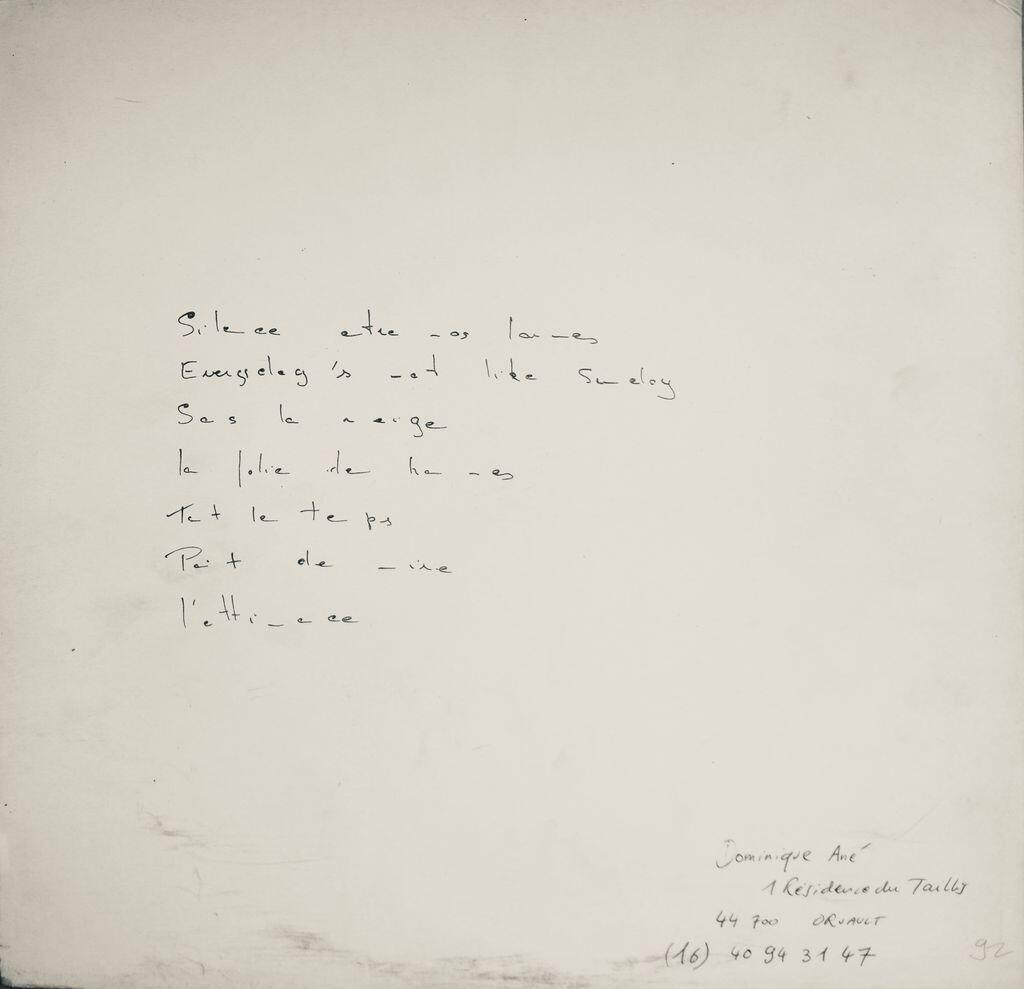 Silence entre nos larmes
Everyday's not like Sunday
Sous la neige
la folie des hommes
Tout le temps
Point de mire
l'attirance
Dominique Ané
1 Résidence du Tailly
44 700 ORVAULT
(16) 40 94 31 47
92